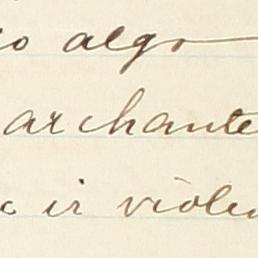 io algo
archante
c ir viole